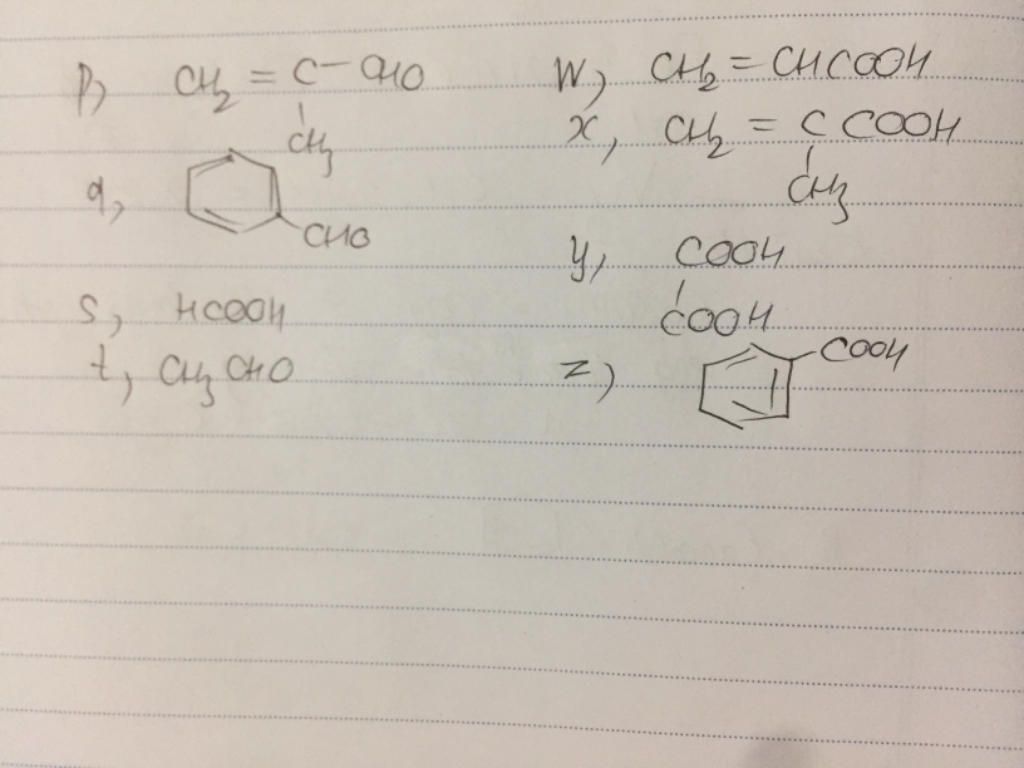 p, CH2 = C - CHO
CH3
q, CHO
s, HCOOH
t, CH3 CHO
W, CH2 = CHCOOH
x, CH2 = C COOH
CH3
y, COOH
COOH
z) COOH